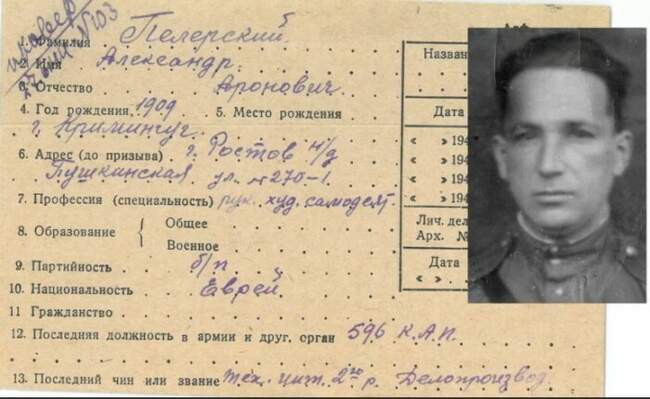 1. Фамилия Пелерский
2. Имя Александр.
3. Отчество Аронович.
4. Год рождения 1909 5. Место рождения
г.
6. Адрес (до призыва) г. Ростов н/д
Пушкинская ул. № 270-1.
7. Профессия (специальность) рук. худ. самодеят.
8. Образование { Общее
Военное
9. Партийность б/п
10. Национальность Еврей
11 Гражданство
12. Последняя должность в армии и друг. орган 596 К.А.П.
13. Последний чин или звание тех. инт. 2го р. Делопроизвод.
Назван
Дата
« » 194
« » 194
« » 194
« » 194
Лич. дел
Арх. №
Дата
« »